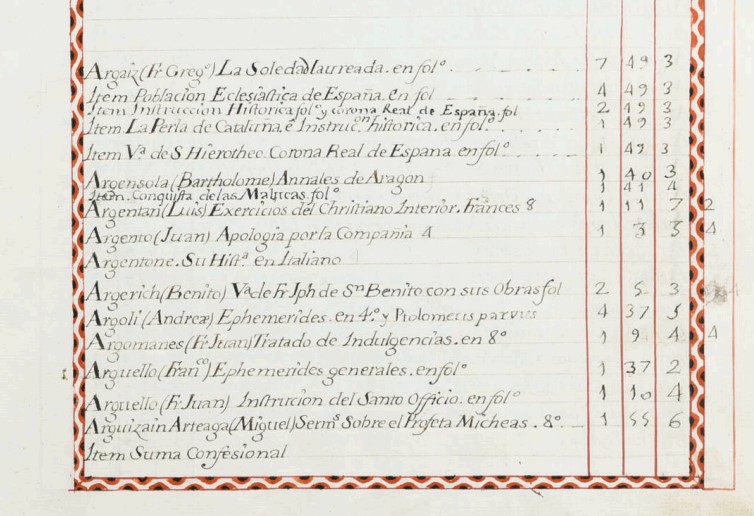 Argaiz (Fr Greg.º) La Soledad laureada. en folº 7 49 3
Item Poblacion Eclesiastica de España. en fol 4 49 3
Item Instruccion Historica folº y corona Real de España. fol 2 49 3
Item La Perla de Cataluña, é Instruc.on historica. en folº. 1 49 3
Item V.ª de S Hierotheo. Corona Real de Espana en folº 1 49 3
Argensola (Bartholome) Annales de Aragon 1 40 3
Item. Conquista de las Malucas. folº 1 41 4
Argentan (Luis) Exercicios del Christiano Interior. Frances 8 1 11 7 2
Argento (Juan) Apologia por la Compañia 4 1 3 3 4
Argentone. Su Hist.ª en Italiano
Argerich (Benito) V.ª de Fr Jph de S.n Benito con sus Obras fol 2 5 3 4
Argoli (Andreæ) Ephemerides. en 4.º y Ptolomeus parvus 4 37 5
Argomanes (Fr Juan) Tratado de Indulgencias. en 8º 1 9 4 4
Arguello (Fran.co) Ephemerides generales. en folº 1 37 2
Arguello (Fr Juan) Instrucion del Santo Officio. en folº 1 10 4
Arguizain Arteaga (Miguel) Serm.s Sobre el Profeta Micheas. 8º. 1 55 6
Item Suma Confesional